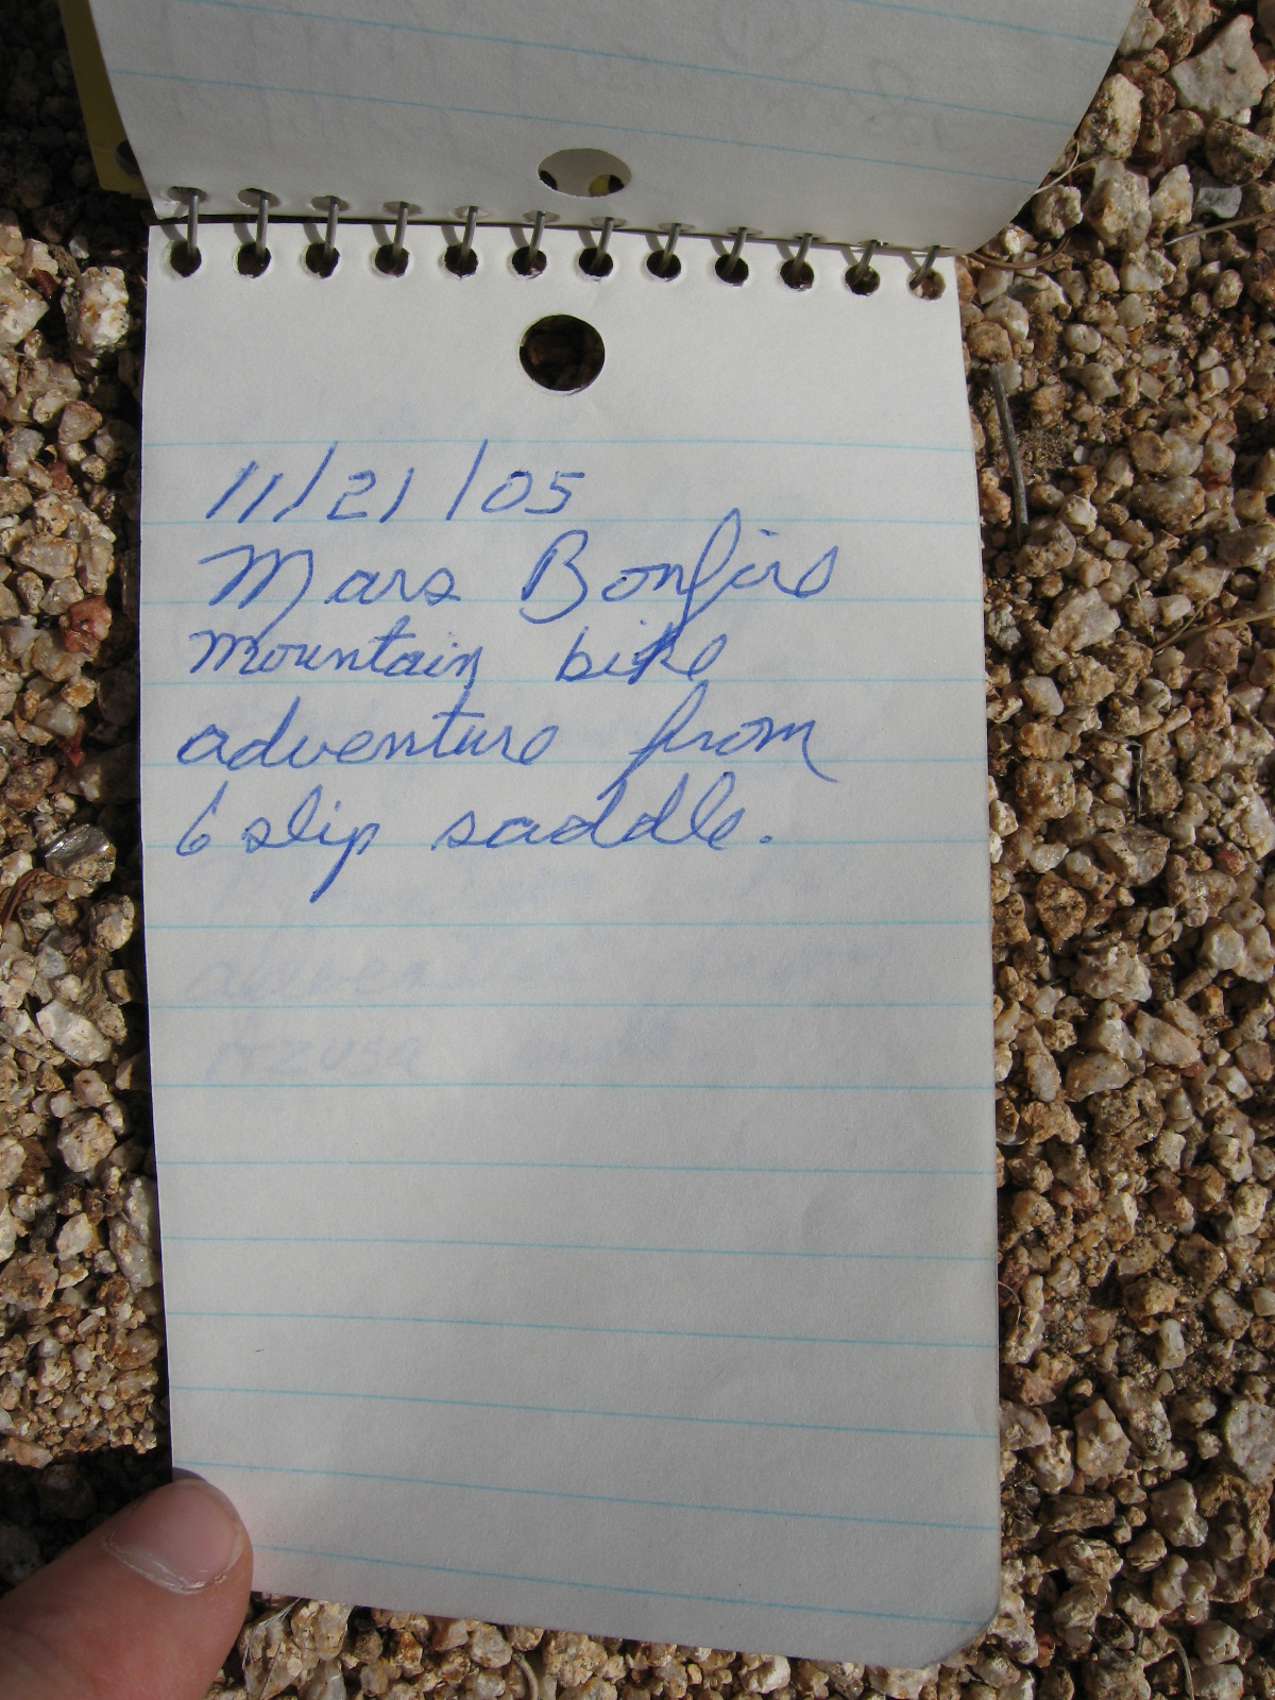 11/21/05
Mars Bonfire
mountain bike
adventure from
6 slip saddle.